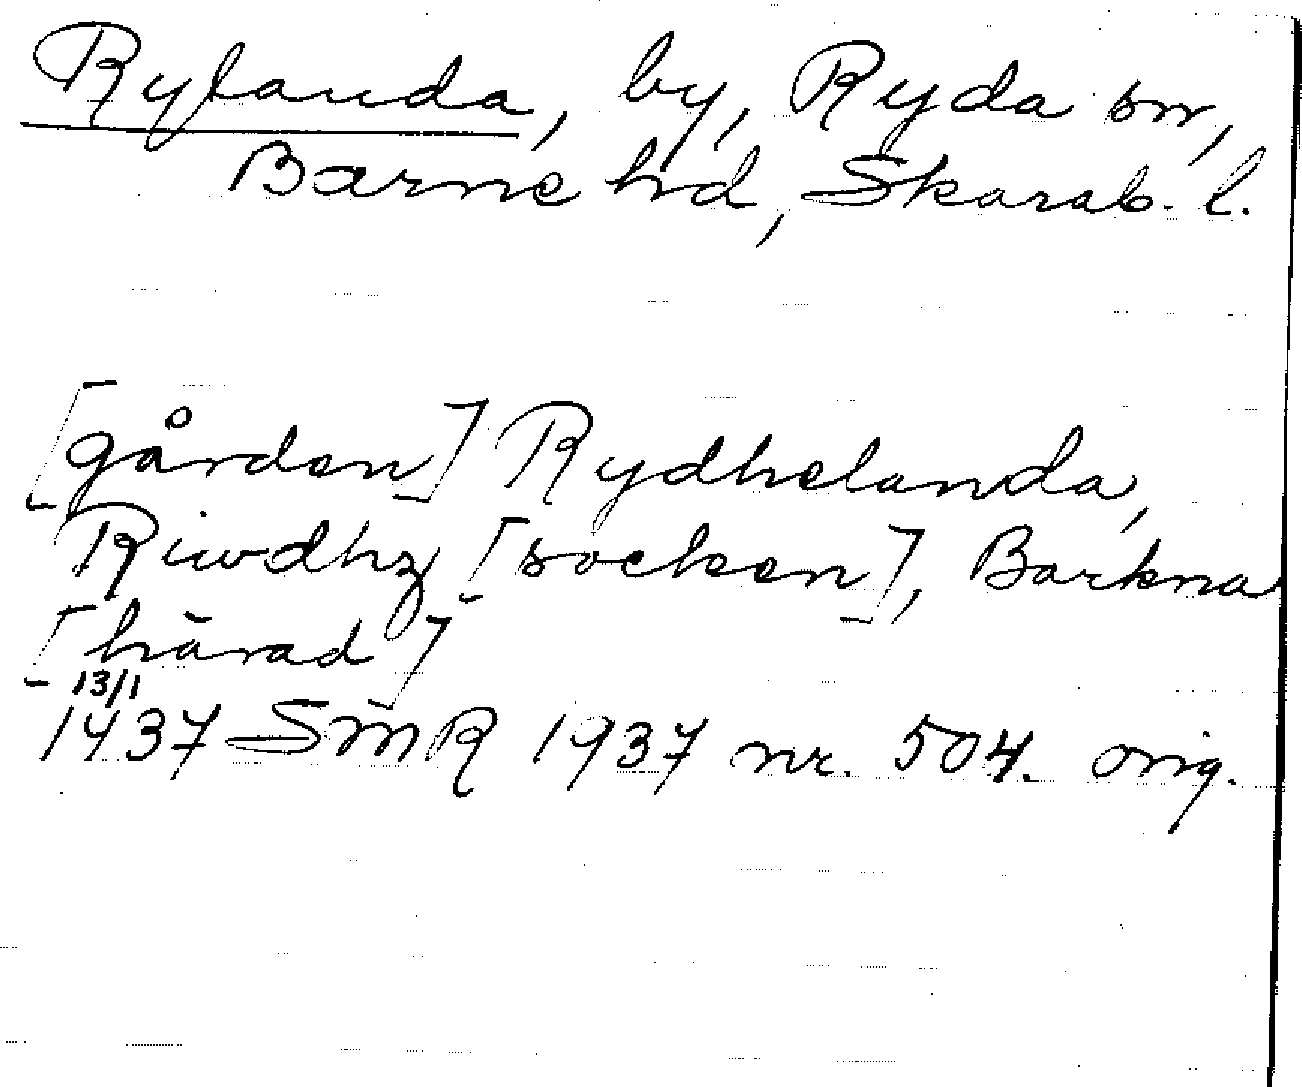 Rylanda, by, Ryda sn,
Barne hd, Skarab. l.
[gården] Rydhelanda,
Riwdhz [socken], Barkna
[härad]
13/1
1437 SMR 1937 nr. 504. orig.